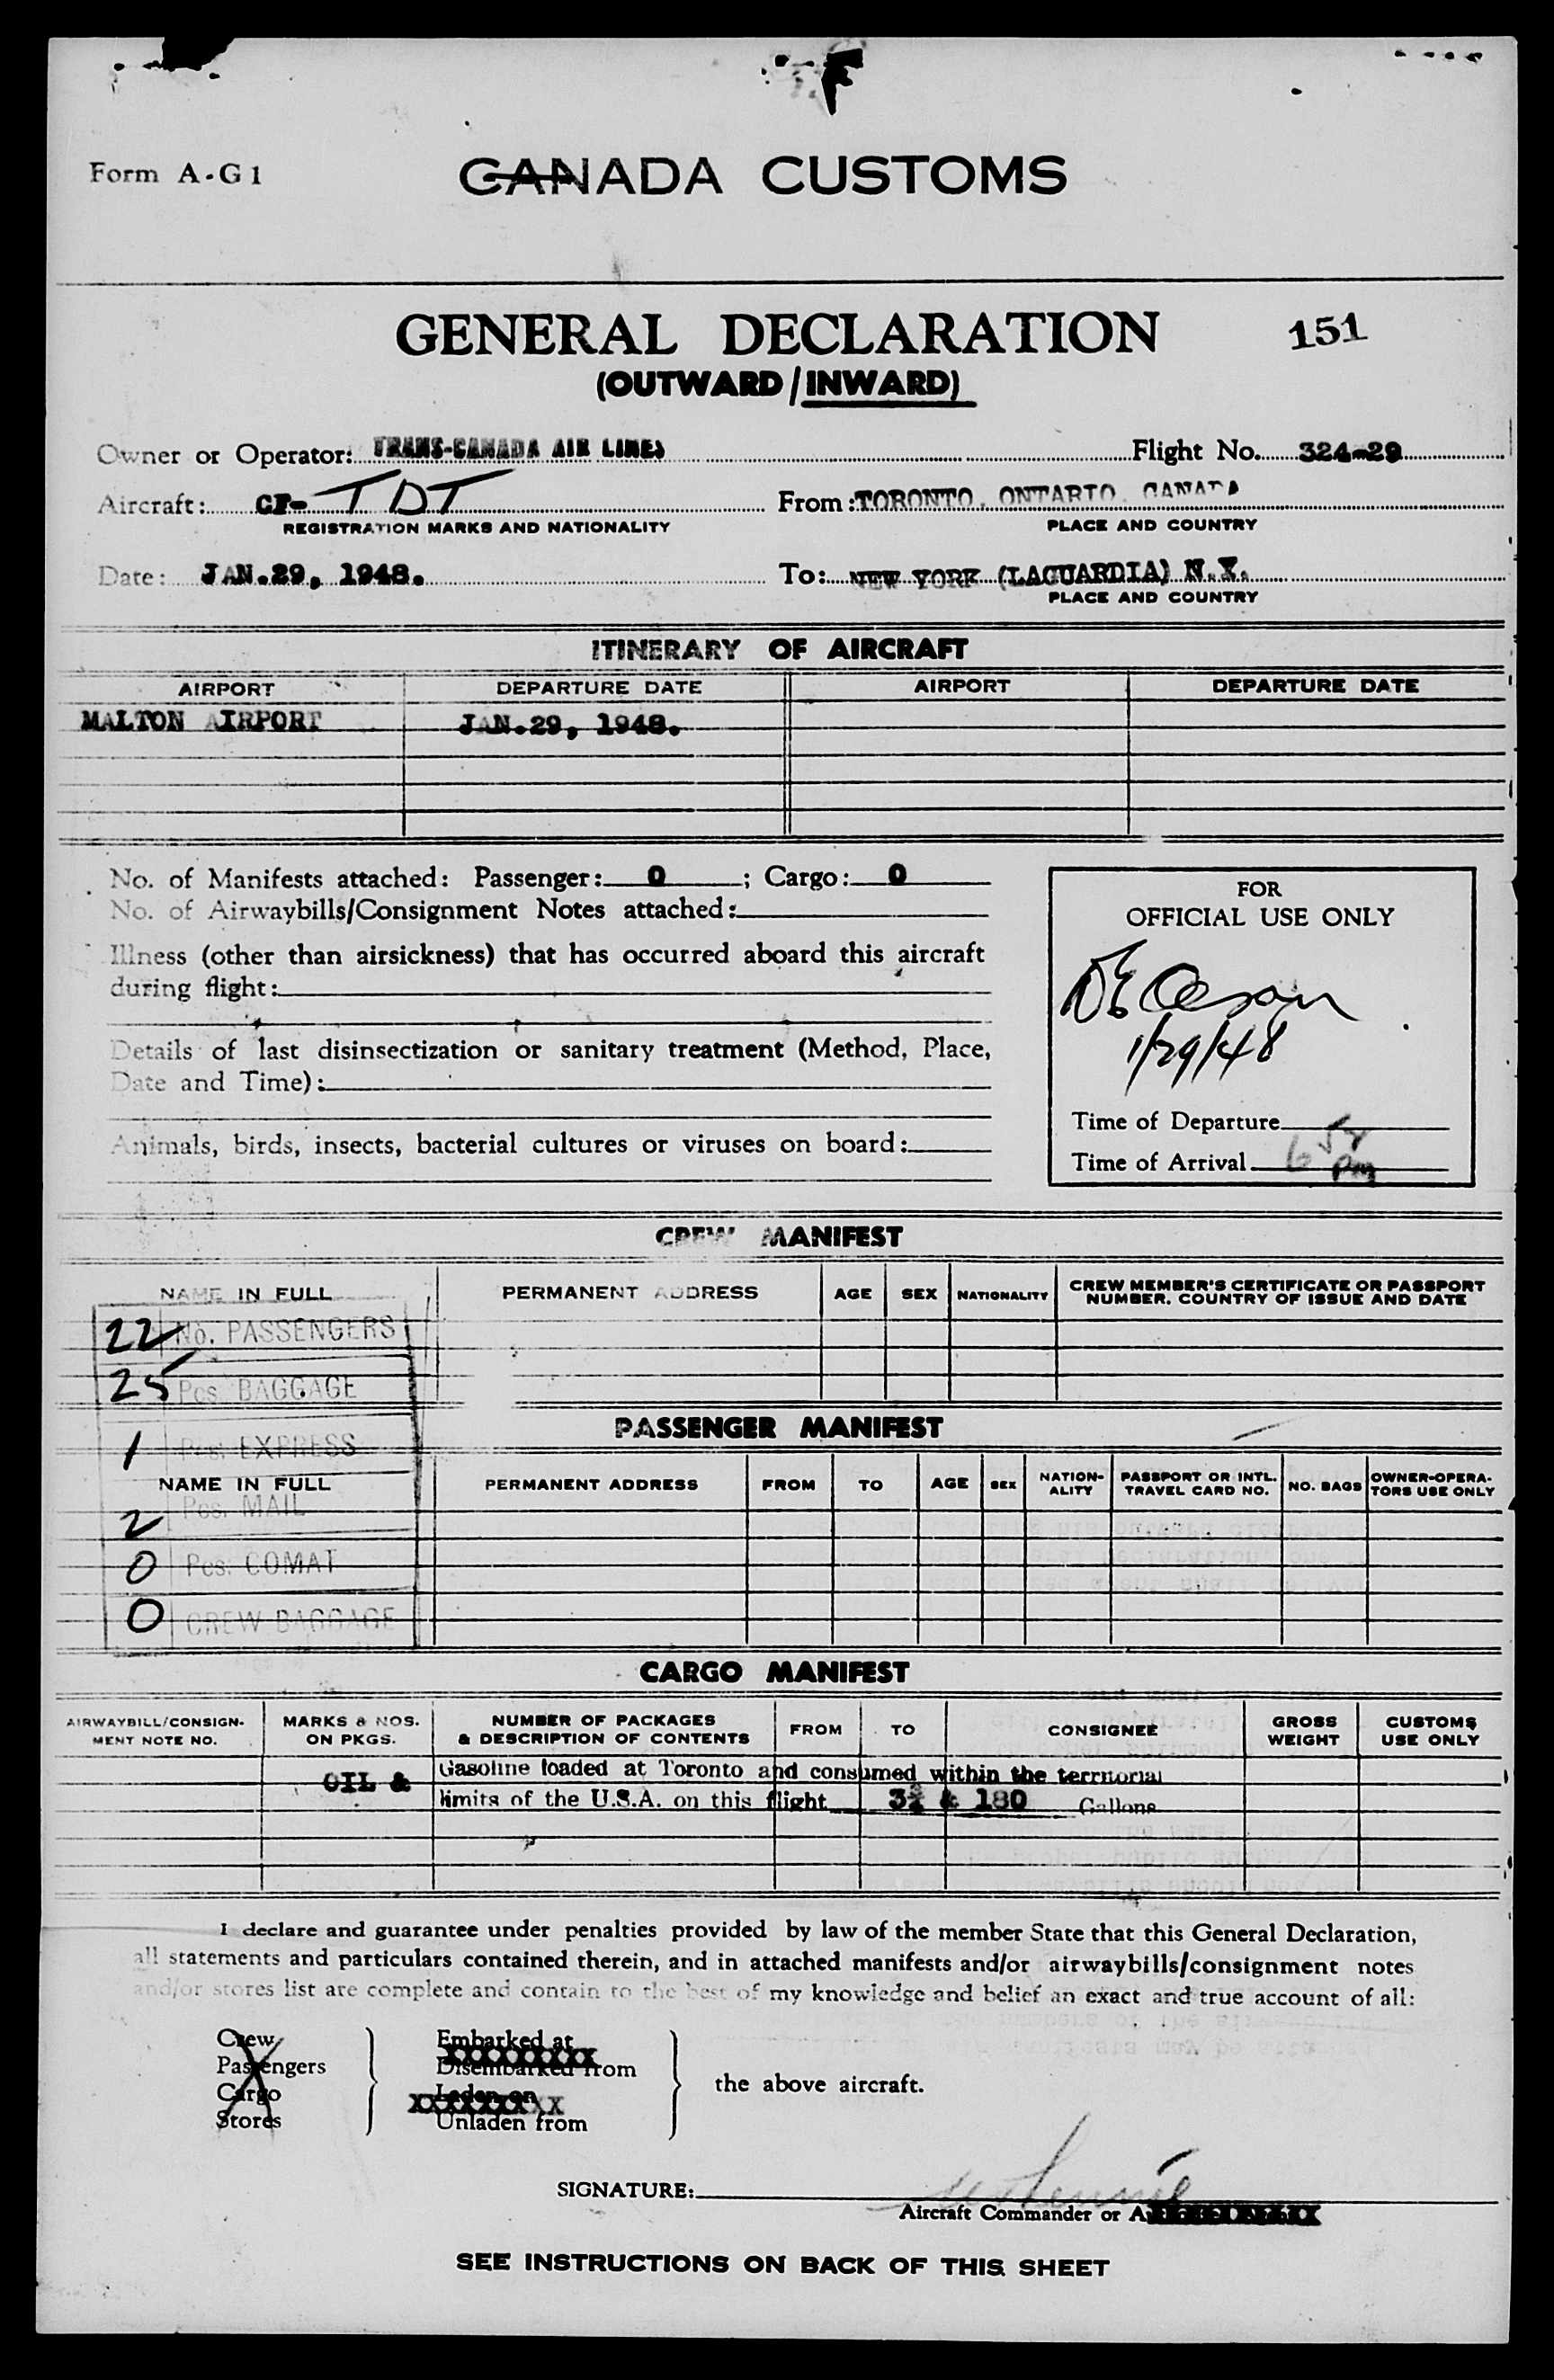 Form A-G1
CANADA CUSTOMS
GENERAL DECLARATION
151
(OUTWARD/INWARD)
Owner or Operator: TRANS-CANADA AIR LINES Flight No. 324-29
Aircraft: CF- TDT From: TORONTO, ONTARIO, CANADA
REGISTRATION MARKS AND NATIONALITY PLACE AND COUNTRY
Date: JAN.29, 1948. To: NEW YORK (LAGUARDIA) N.Y.
PLACE AND COUNTRY
ITINERARY OF AIRCRAFT
AIRPORT DEPARTURE DATE AIRPORT DEPARTURE DATE
MALTON AIRPORT JAN.29, 1948.
No. of Manifests attached: Passenger: 0 ; Cargo: 0
No. of Airwaybills/Consignment Notes attached:
Illness (other than airsickness) that has occurred aboard this aircraft
during flight:
Details of last disinsectization or sanitary treatment (Method, Place,
Date and Time):
Animals, birds, insects, bacterial cultures or viruses on board:
FOR
OFFICIAL USE ONLY
1/29/48
Time of Departure
Time of Arrival 6 55 PM
CREW MANIFEST
NAME IN FULL PERMANENT ADDRESS AGE SEX NATIONALITY CREW MEMBER'S CERTIFICATE OR PASSPORT
NUMBER, COUNTRY OF ISSUE AND DATE
22 No. PASSENGERS
25 Pcs. BAGGAGE
PASSENGER MANIFEST
1 Pcs. EXPRESS
NAME IN FULL PERMANENT ADDRESS FROM TO AGE SEX NATION-
ALITY PASSPORT OR INTL.
TRAVEL CARD NO. NO. BAGS OWNER-OPERA-
TORS USE ONLY
2 Pcs. MAIL
0 Pcs. COMAT
0 CREW BAGGAGE
CARGO MANIFEST
AIRWAYBILL/CONSIGN-
MENT NOTE NO. MARKS & NOS.
ON PKGS. NUMBER OF PACKAGES
& DESCRIPTION OF CONTENTS FROM TO CONSIGNEE GROSS
WEIGHT CUSTOMS
USE ONLY
OIL & Gasoline loaded at Toronto and consumed within the territorial
limits of the U.S.A. on this flight 3¾ & 180 Gallons
I declare and guarantee under penalties provided by law of the member State that this General Declaration,
all statements and particulars contained therein, and in attached manifests and/or airwaybills/consignment notes
and/or stores list are complete and contain to the best of my knowledge and belief an exact and true account of all:
Crew
Passengers
Cargo
Stores
Embarked at
Disembarked from
Laden on
Unladen from
the above aircraft.
SIGNATURE:
Aircraft Commander or
SEE INSTRUCTIONS ON BACK OF THIS SHEET